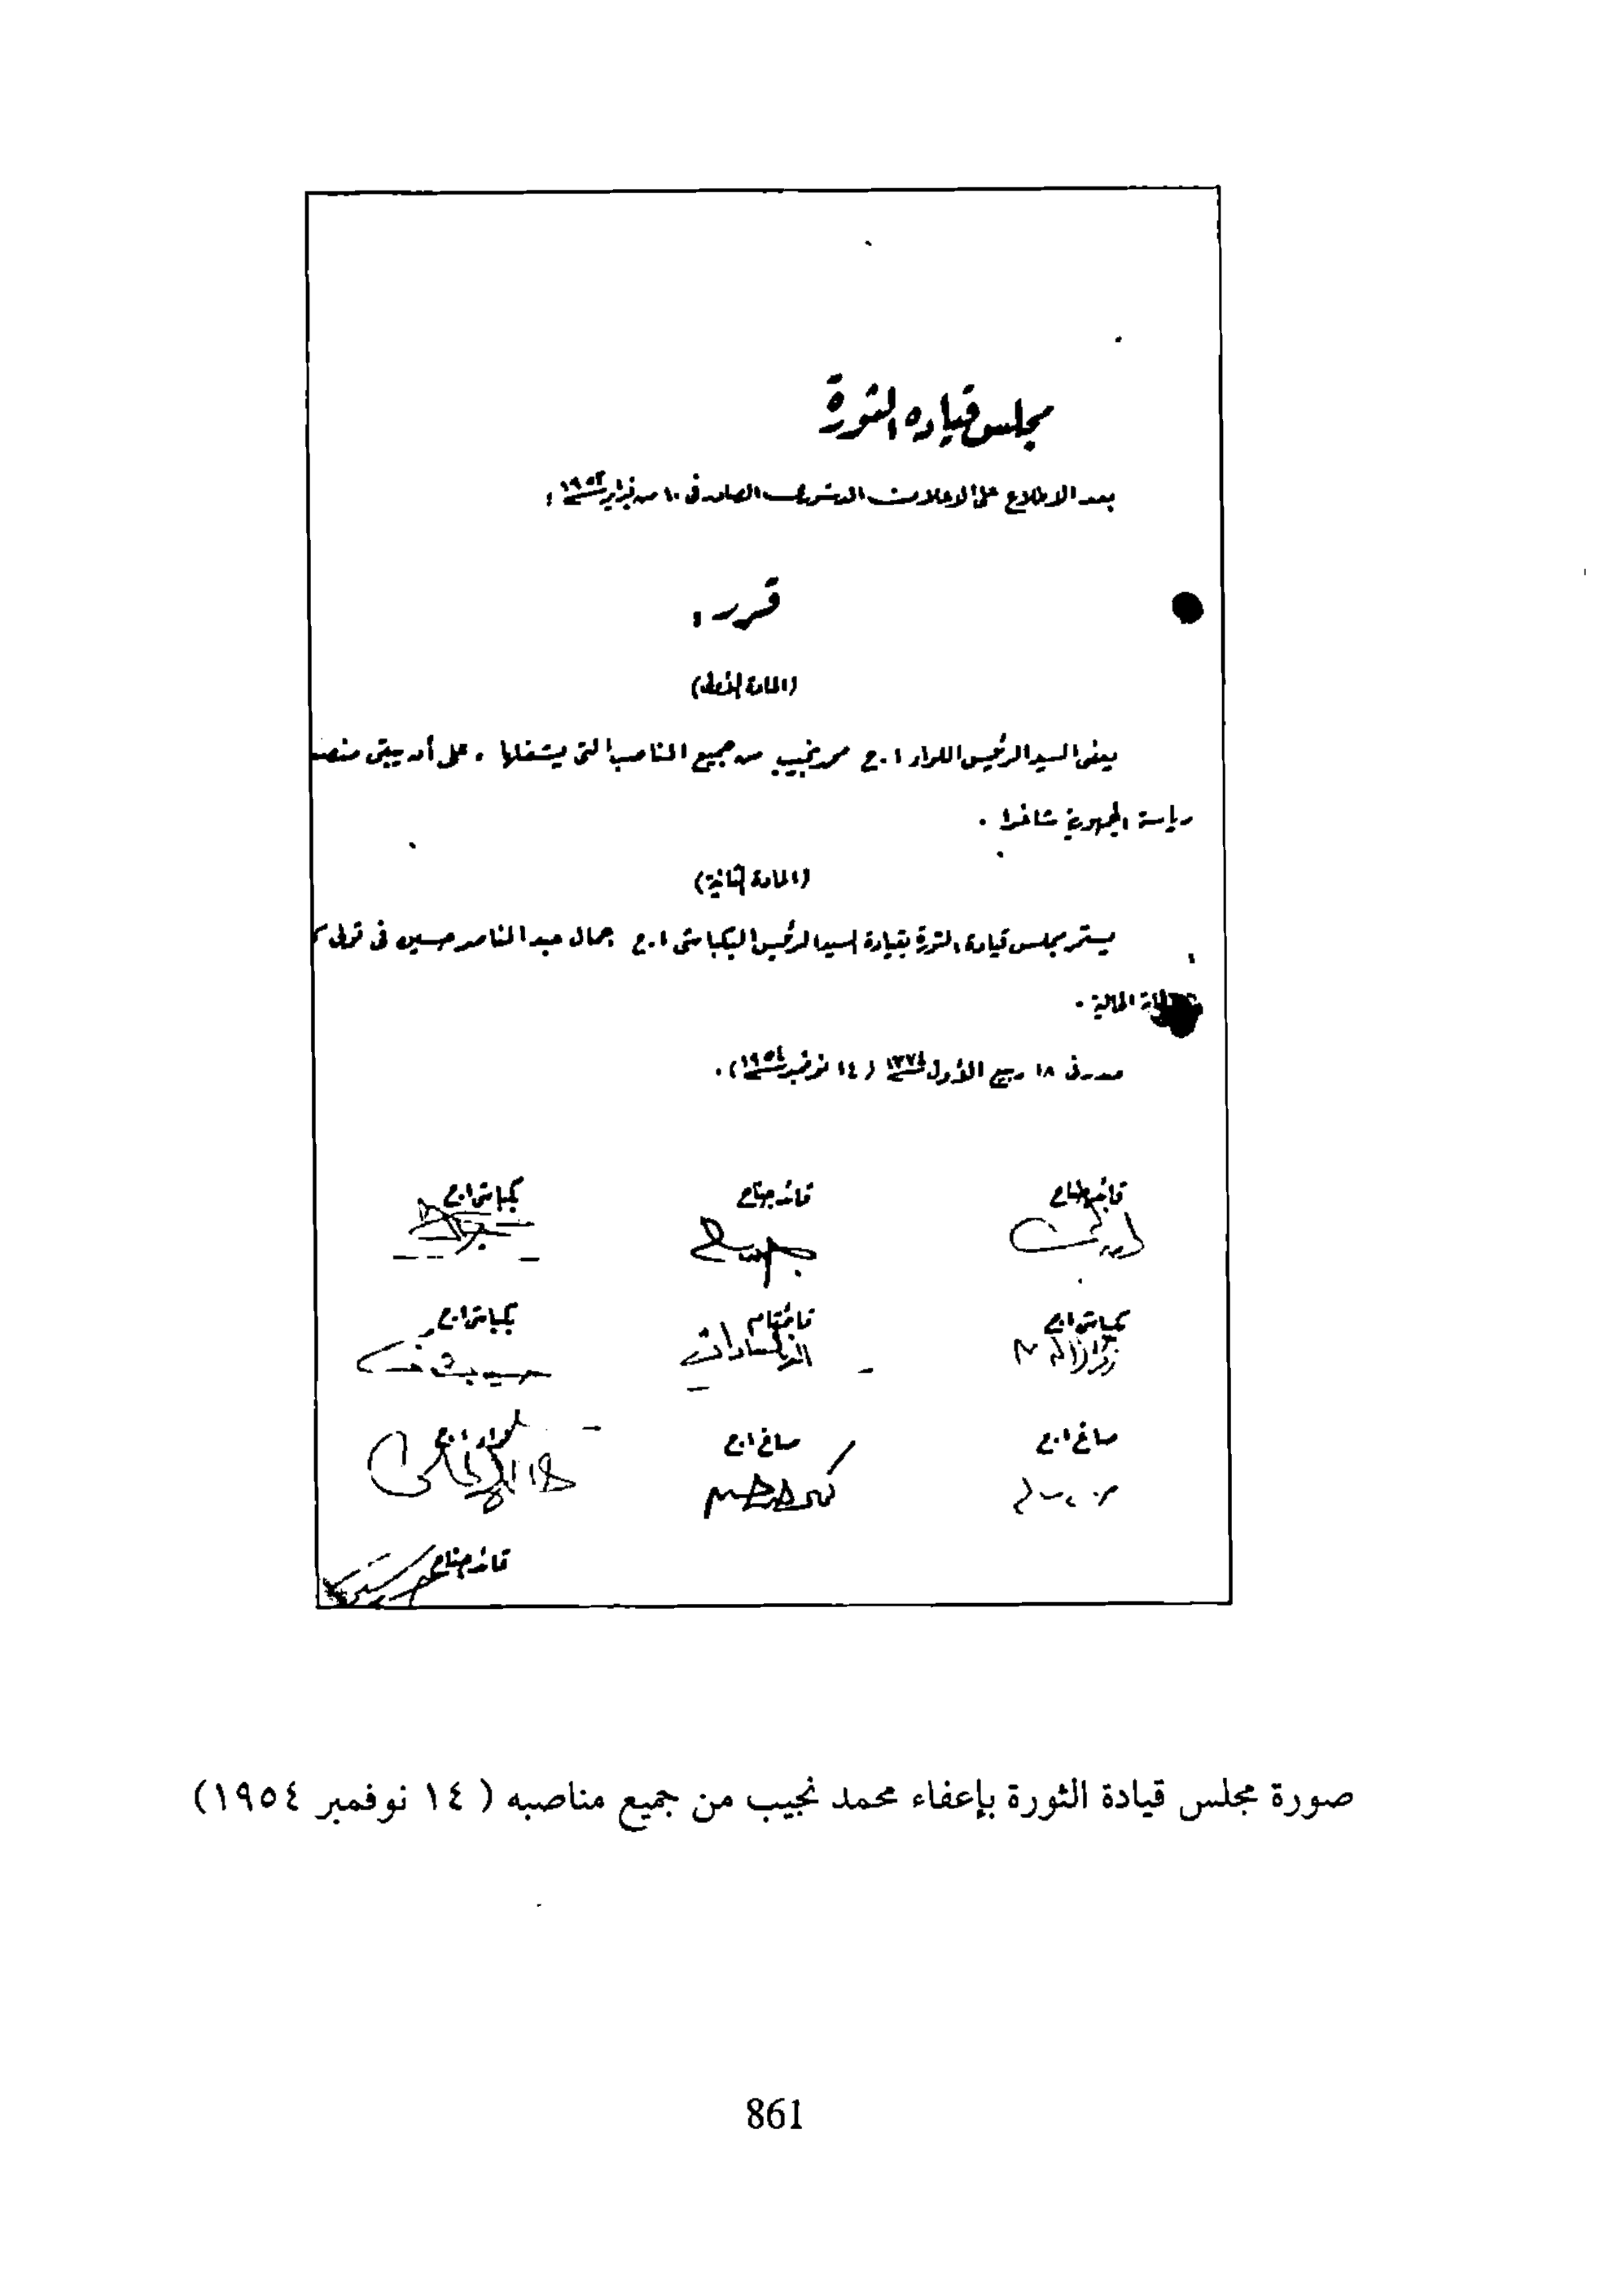 مجلس قياده الثورة
بعد الاطلاع على الاعلان الدستورى الصادر فى ١٠ من فبراير سنة ١٩٥٣ ؛
قرر :
(المادة الأولى)
يعفى السيد الرئيس اللواء ا.ح محمد نجيب من جميع المناصب التى يشغلها ، على أن يبقى منصب
رياسة الجمهورية شاغرا .
(المادة الثانية)
يستمر مجلس قيادة الثورة بقيادة السيد الرئيس البكباشى ا.ح جمال عبد الناصر حسين فى تولى
الحالية .
صدر فى ١٨ ربيع الأول سنة ١٣٧٤ (١٤ نوفمبر سنة ١٩٥٤) .
قائد جناح قائد جناح بكباشى ا.ح
بكباشى ا.ح قائمقام بكباشى ا.ح
أنور السادات
صاغ ا.ح صاغ ا.ح لواء ا.ح
قائد جناح
صورة مجلس قيادة الثورة بإعفاء محمد نجيب من جميع مناصبه ( ١٤ نوفمبر ١٩٥٤)
861